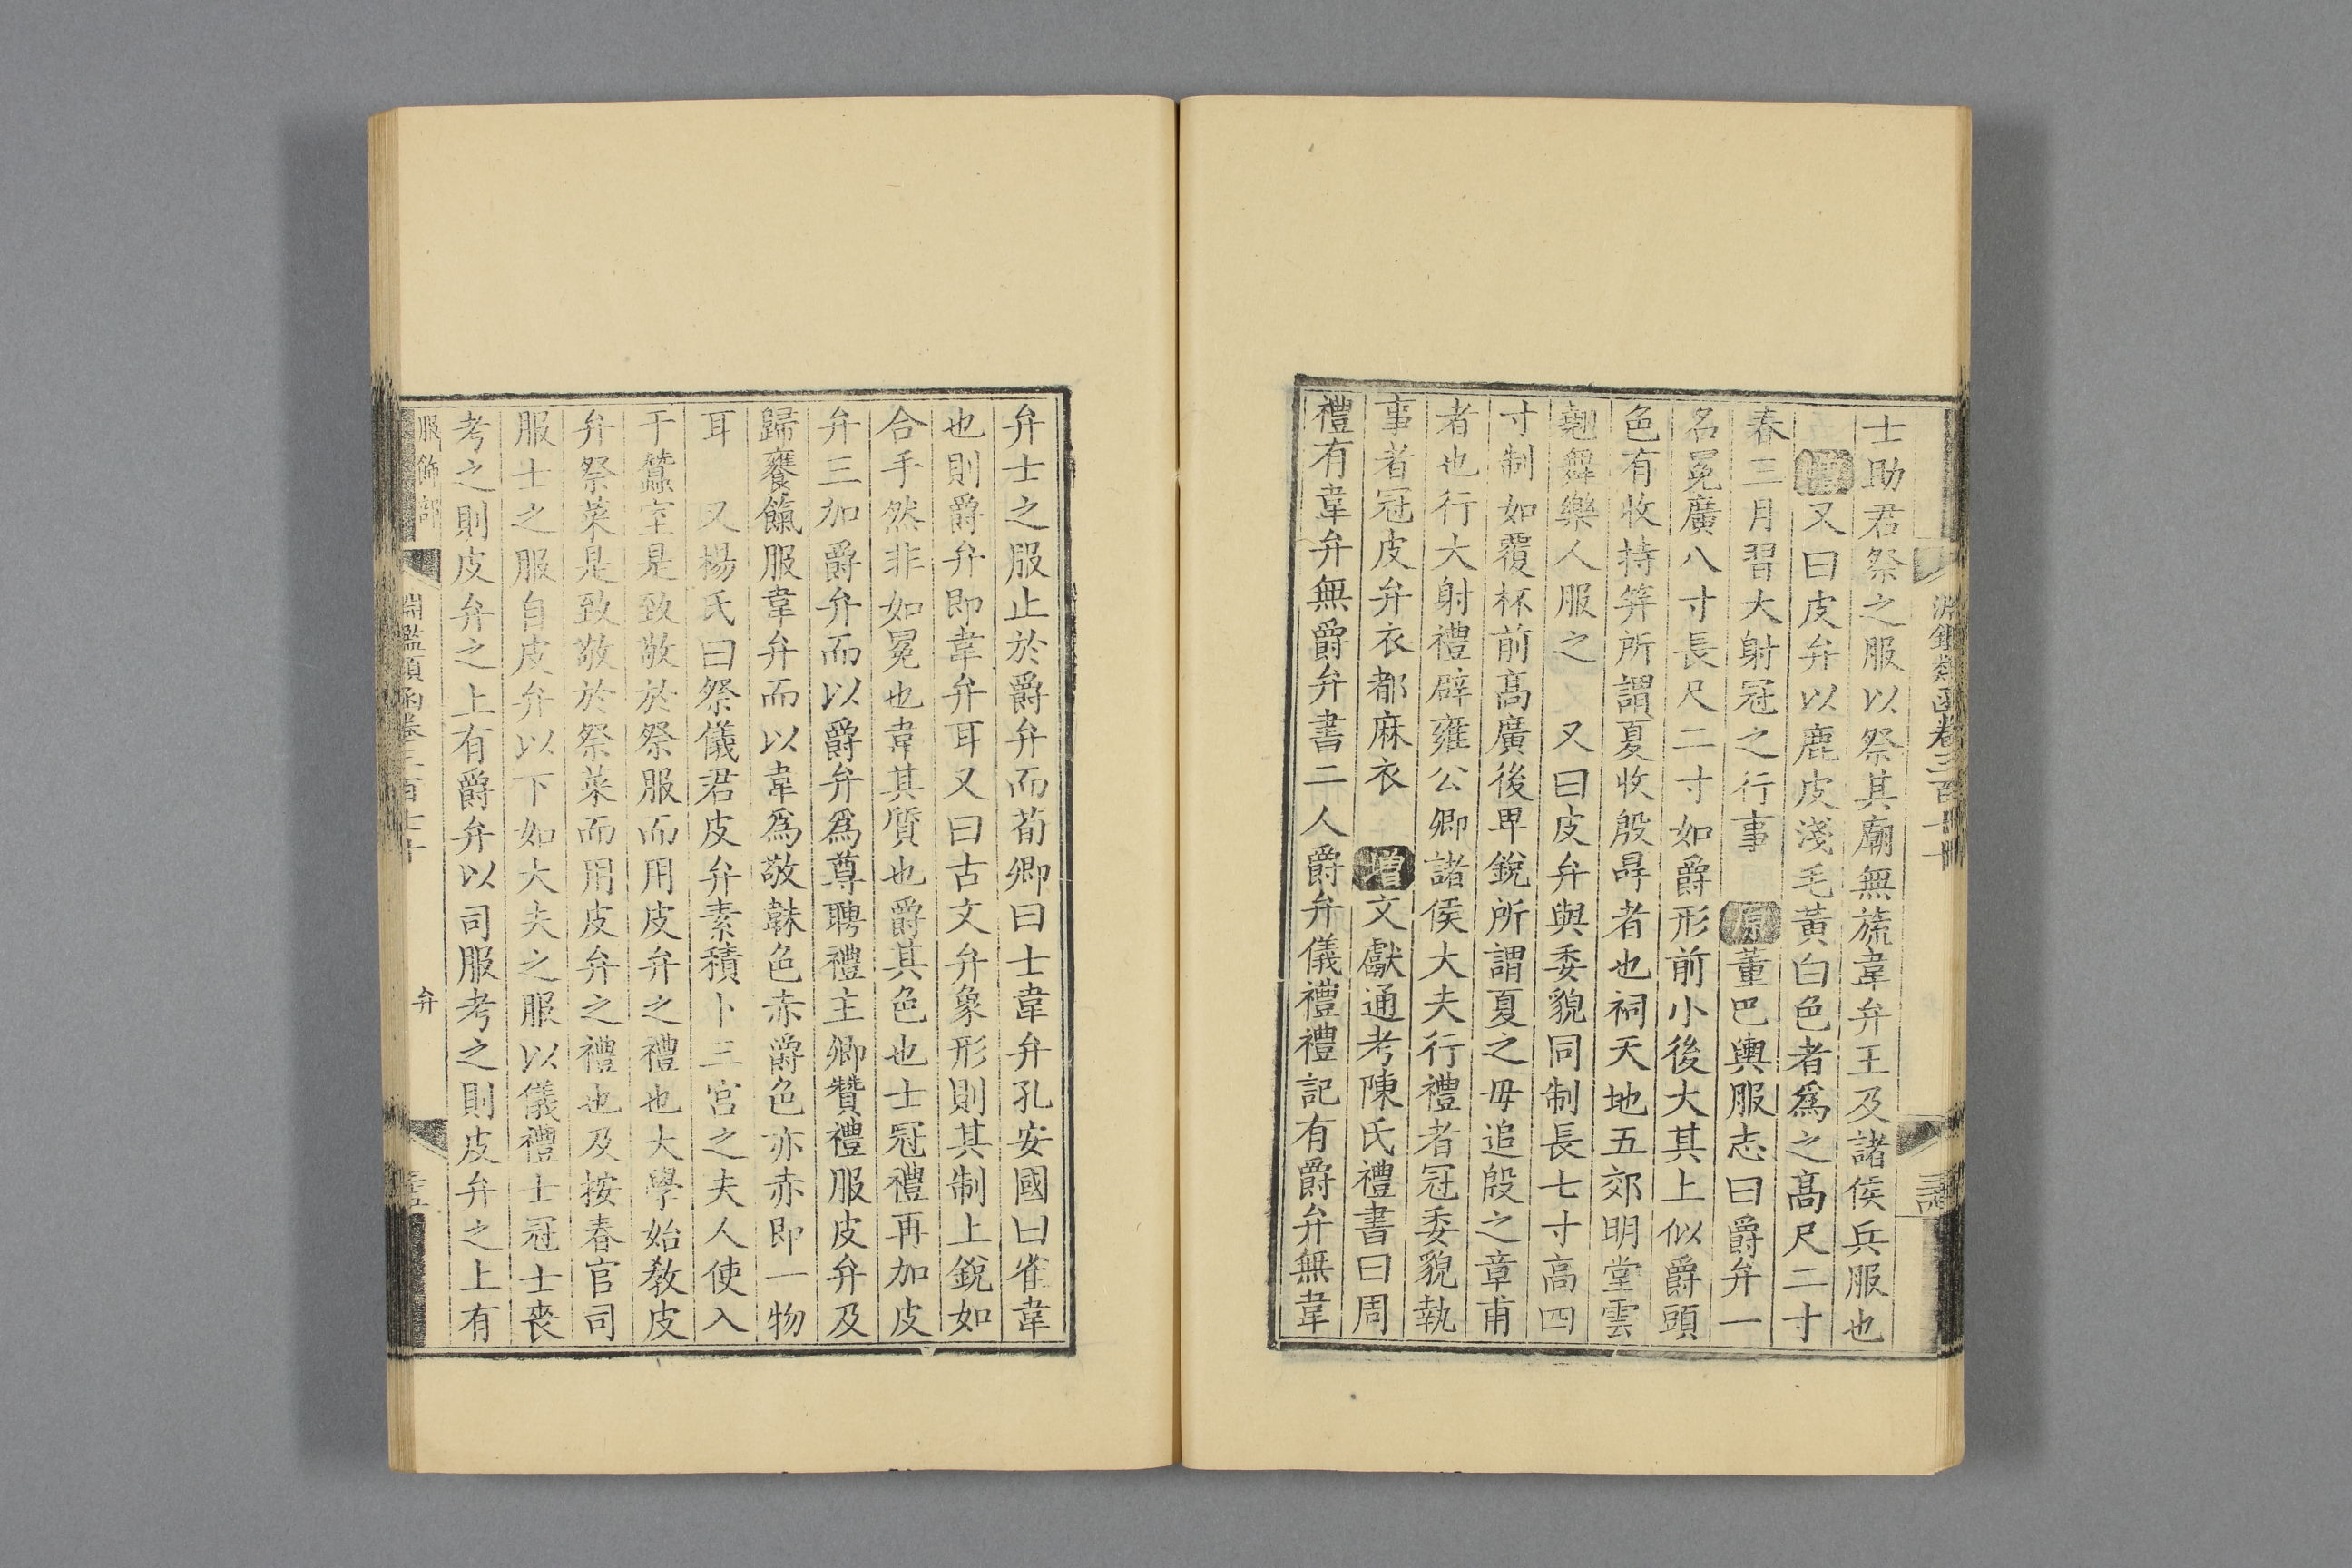 士助君祭之服以祭其廟無旒韋弁王及諸侯兵服也
增又曰皮弁以鹿皮淺毛黃白色者爲之髙尺二寸
春三月習大射冠之行事　原董巴輿服志曰爵弁一
名冕廣八寸長尺二寸如爵形前小後大其上似爵頭
色有收持笄所謂夏收殷冔者也祠天地五郊明堂雲
翹舞樂人服之　又曰皮弁與委貌同制長七寸高四
寸制如覆杯前髙廣後卑銳所謂夏之毋追殷之章甫
者也行大射禮辟雍公卿諸侯大夫行禮者冠委貌執
事者冠皮弁衣都麻衣　增文獻通考陳氏禮書曰周
禮有韋弁無爵弁書二人爵弁儀禮禮記有爵弁無韋
弁士之服止於爵弁而荀卿曰士韋弁孔安國曰雀韋
也則爵弁即韋弁耳又曰古文弁象形則其制上銳如
合手然非如冕也韋其質也爵其色也士冠禮再加皮
弁三加爵弁而以爵弁爲尊聘禮主卿贊禮服皮弁及
歸饔餼服韋弁而以韋爲敬韎色赤爵色亦赤即一物
耳　又楊氏曰祭儀君皮弁素積卜三宮之夫人使入
于蠶室是致敬於祭服而用皮弁之禮也大學始敎皮
弁祭菜是致敬於祭菜而用皮弁之禮也及按春官司
服士之服自皮弁以下如大夫之服以儀禮士冠士喪
考之則皮弁之上有爵弁以司服考之則皮弁之上有
服飾部
淵鑑類函卷三百七十
弁